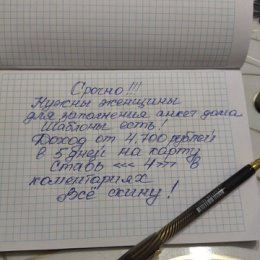 Срочно!!!
Нужны женщины
для заполнения анкет дома
Шаблоны есть!
Доход от 4,700 рублей
в 5 дней на карту
Ставь <<< 4>>> в
коментариях
Всё скину!